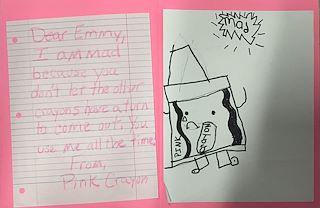 Dear Emmy,
I am mad
because you
don't let the other
crayons have a turn
to come out. You
use me all the time.
From,
Pink Crayon
mad
PINK